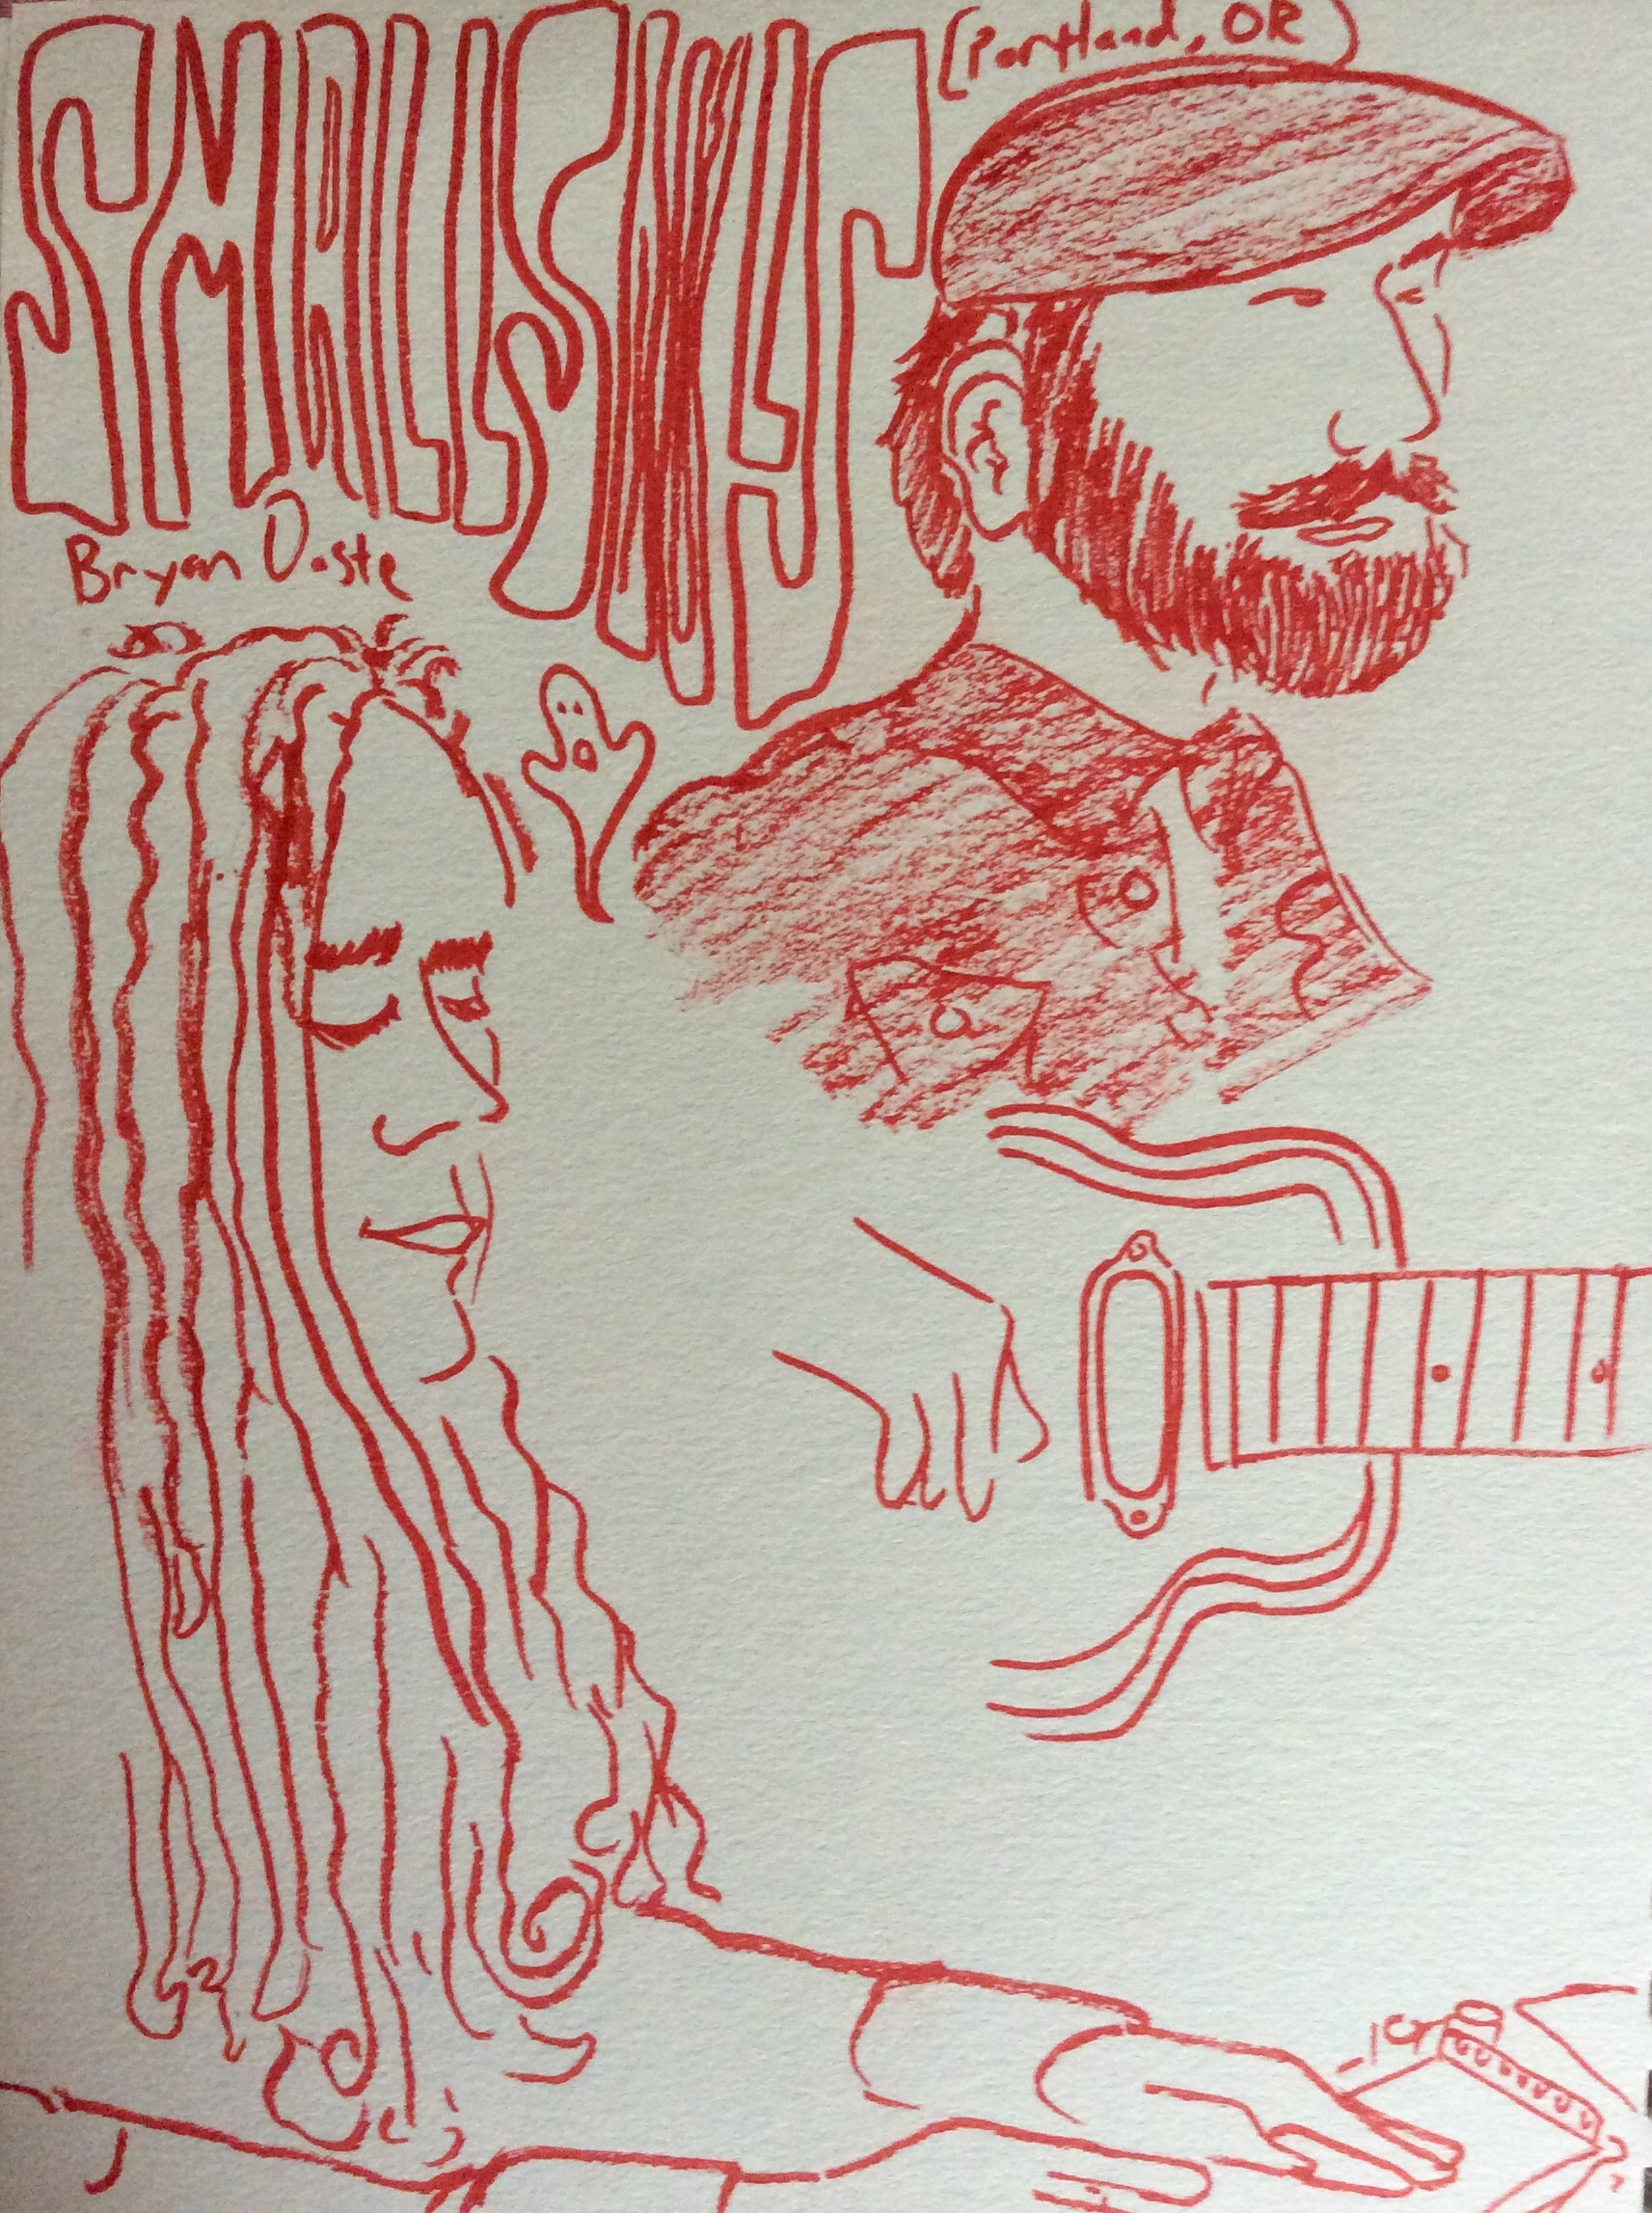 SMALL SKIES
(Portland, OR)
Bryan Daste